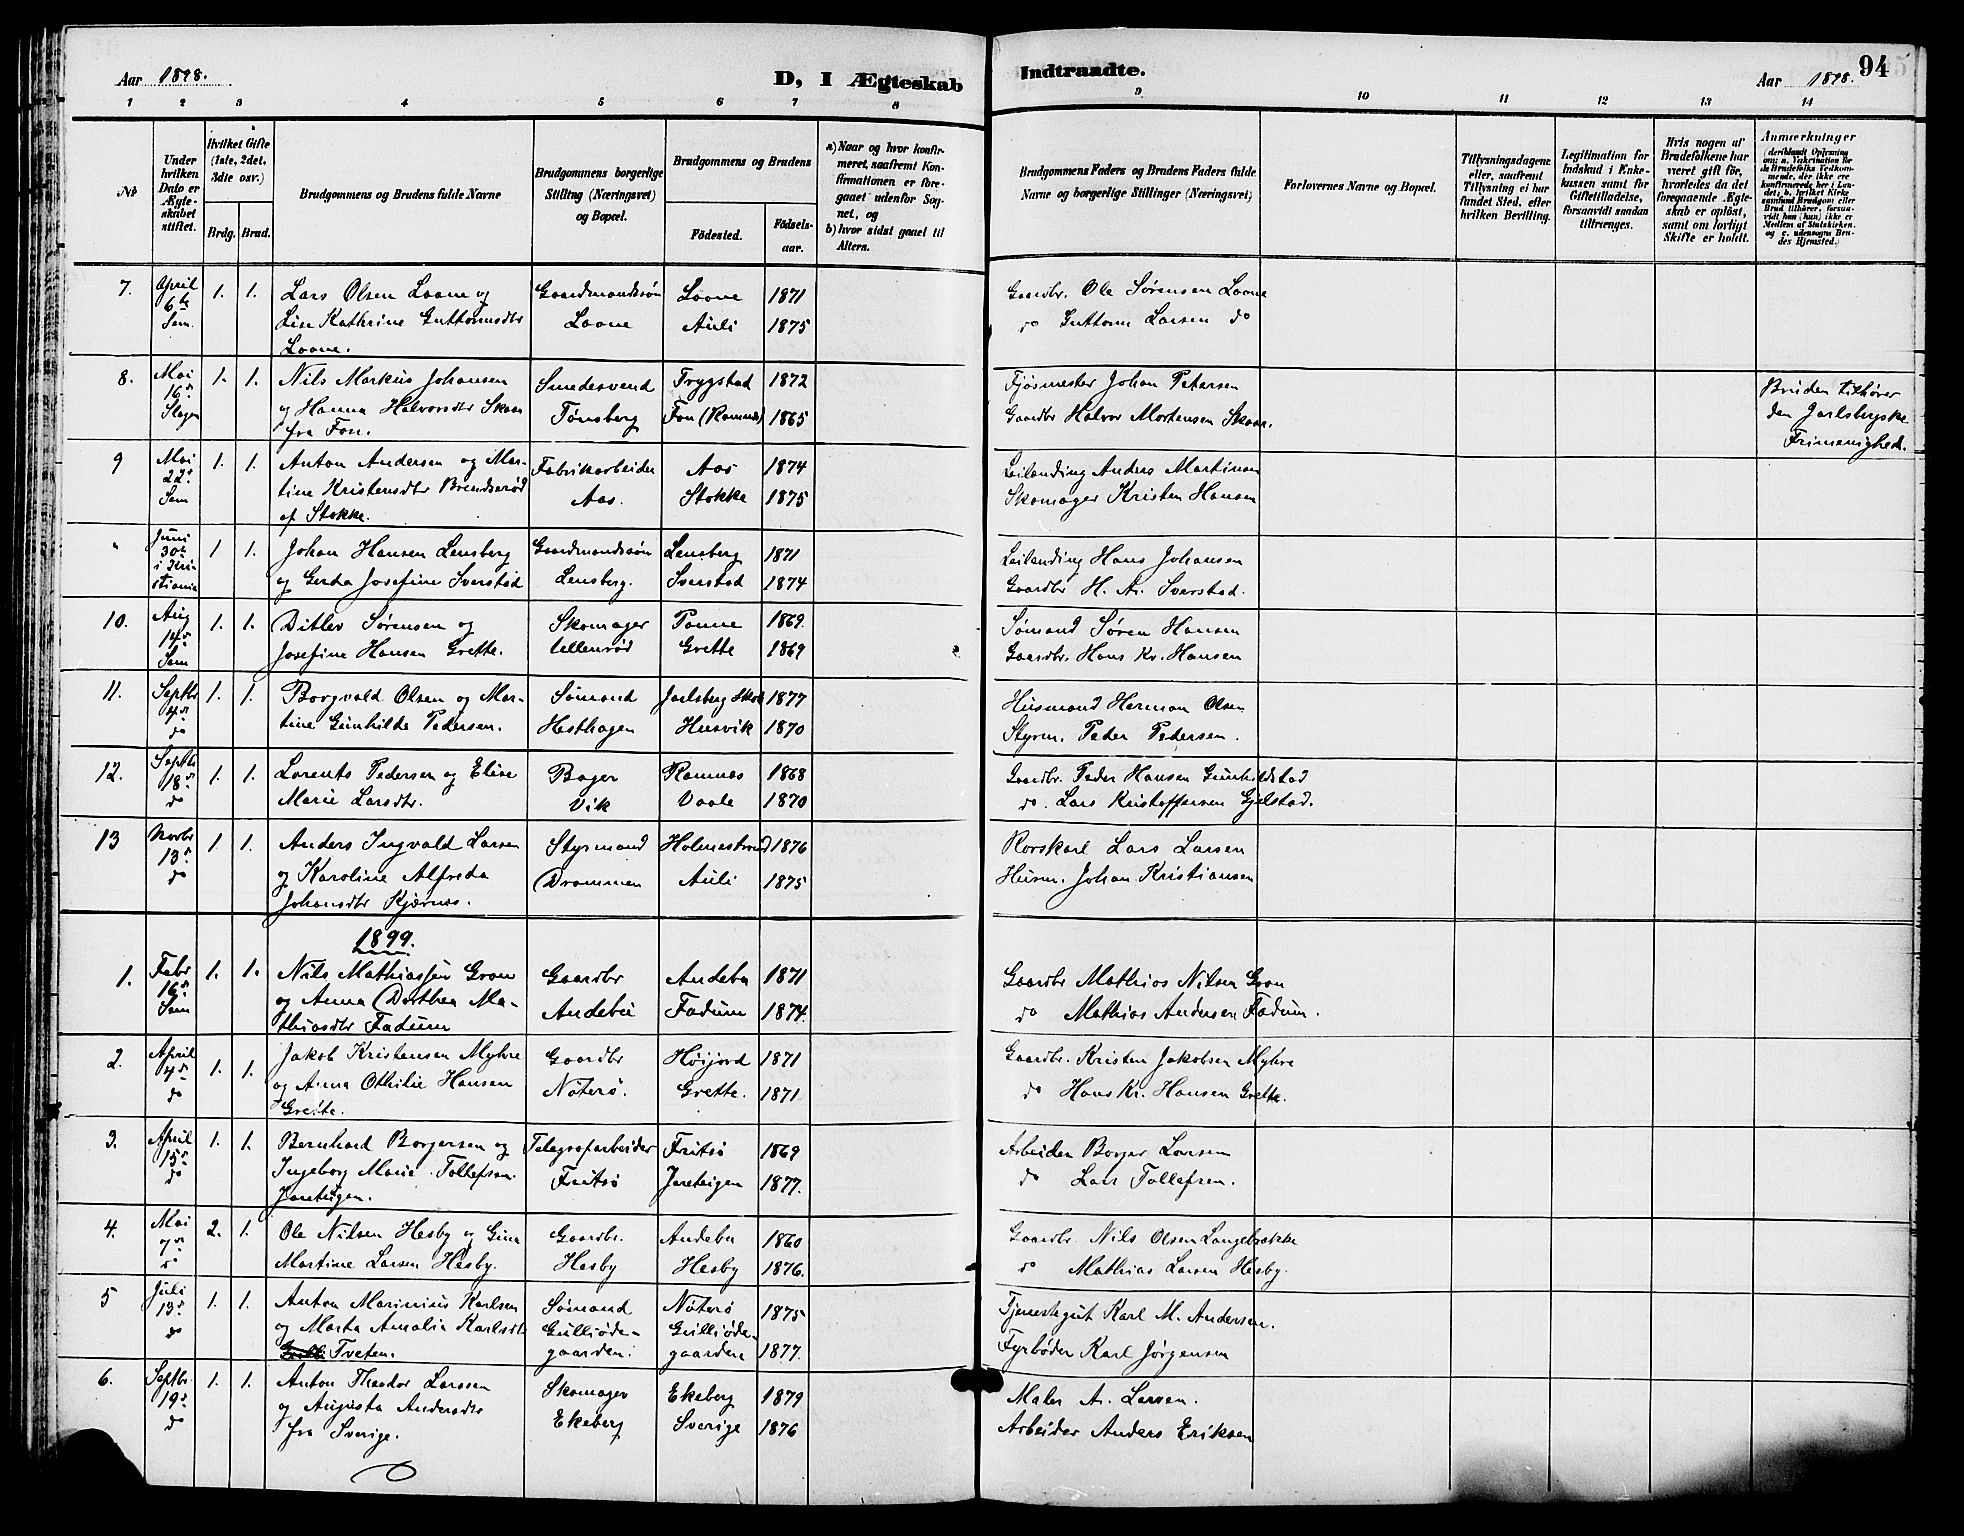 Aar 1898.
D, I Ægteskab
Indtraadte.
Aar 1898.
94
1 2 3 4 5 6 7 8 9 10 11 12 13 14
No
Under hvilken Dato er Ægteskabet stiftet.
Hvilket Gifte (1ste, 2det, 3die osv.)
Brdg. Brud.
Brudgommens og Brudens fulde Navne
Brudgommens borgerlige Stilling (Næringsvei) og Bopæl.
Brudgommens og Brudens
Födested. Födselsaar.
a) Naar og hvor konfirmeret, saafremt Konfirmationen er foregaaet udenfor Sognet, og
b) hvor sidst gaaet til Alters.
Brudgommens Faders og Brudens Faders fulde Navne og borgerlige Stillinger (Næringsvei)
Forlovernes Navne og Bopæl.
Tillysningsdagene eller, saafremt Tillysning ei har fundet Sted, efter hvilken Bevilling.
Legitimation for Indskud i Enkekassen samt for Giftetilladelse, forsaavidt saadan tiltrænges.
Hvis nogen af Brudefolkene har været gift för, hvorledes da det foregaaende Ægteskab er oplöst, samt om lovligt Skifte er holdt.
Anmærkninger
7. April 6te Sem. 1. 1. Lars Olsen Loone og Gaardmandssön Loone 1871 Gaardbr. Ole Sørensen Loone
Lise Kathrine Guttormsdtr Loone Auli 1875 do Guttorm Larsen do
Loone.
8. Mai 16de Slagen 1. 1. Nils Markus Johansen Smedesvend Trygstad 1872 Fjøsmester Johan Petersen Bruden tilhører
og Hanna Halvorsdtr Skaar Tønsberg Fon (Ramnæs) 1865 Gaardbr Halvor Mortensen Skaar. den Jarlsbergske
fra Fon. Frimenighed.
9 Mai 22de Sem 1. 1. Anton Andersen og Mar- Fabrikarbeider Aas 1874 Leilending Anders Martinsen
tine Kristensdtr Brendsrød Aas. Stokke 1875 Skomager Kristen Hansen
af Stokke.
" Juni 30te i Kristiania 1 1. Johan Hansen Lensberg Gaardmandssøn Lensberg 1871 Leilending Hans Johansen
og Gerda Josefine Sverstad Lensberg. Sverstad 1874 Gaardbr H. A. Sverstad.
10. Aug 14de Sem 1. 1. Ditlev Sørensen og Skomager Tomne 1869. Sømand Søren Hansen
Josefine Hansen Grette. Ullenrød Grette 1869 Gaardbr. Hans Kr. Hansen
11. Septbr 4de do 1. 1. Borgvald Olsen og Mar- Sømand Jarlsberg Skov 1877 Husmand Herman Olsen
tine Gunhilde Pedersen. Hesthagen Husvik 1870 Styrm. Peder Pedersen.
12. Septbr 18de do 1. 1. Lorents Pedersen og Elise Bager Ramnæs 1868 Gaardbr. Peder Hansen Gunhildstad
Marie Larsdtr. Vik Vaale 1870 do. Lars Kristoffersen Gjelstad.
13 Novbr 13de do 1 1. Anders Ingvald Larsen Styrmand Holmestrand 1876 Rorskarl Lars Larsen
og Karoline Alfreda Drammen Auli 1875 Husm. Johan Kristiansen
Johansdtr Kjærnæs.
1899.
1. Febr 16de Sem 1. 1. Nils Mathiassen Gran Gaardbr Andebu 1871 Gaardbr Mathias Nilsen Gran
og Anna Dorthea Ma- Andebu Fadum 1874. do Mathias Andersen Fadum.
thiasdtr Fadum
2. April 4de do 1. 1. Jakob Kristensen Myhre Gaardbr Høijord 1871 Gaardbr. Kristen Jakobsen Myhre
og Anna Othilie Hansen Nøterø. Grette. 1871 do Hans Kr. Hansen Grette.
Grette.
3. April 15de do 1. 1. Bernhard Borgersen og Telegrafarbeider Fritsø 1869 Arbeider Borger Larsen
Ingeborg Marie Tollefsen Fritsø Jareteigen 1877. do Lars Tollefsen.
Jareteigen.
4. Mai 7de do 2. 1. Ole Nilsen Hesby og Gina Gaardbr. Andebu 1860 Gaardbr. Nils Olsen Langebrække
Martine Larsen Hesby. Hesby Hesby 1876. do Mathias Larsen Hesby.
5 Juli 13de do 1. 1. Anton Marinius Karlsen Sømand Nøterø 1875 Tjenestegut Karl M. Andersen.
og Marta Amalia Karlsdtr Gulliøde- Gulliøde- Fyrbøder Karl Jørgensen
Tveten. gaarden. gaarden 1877.
6. Septbr. 19de do 1. 1. Anton Theodor Larsen Skomager Ekeberg 1879 Maler A. Larsen.
og Augusta Andersdtr Ekeberg Sverige 1876 Arbeider Anders Eriksen
fra Sverige.